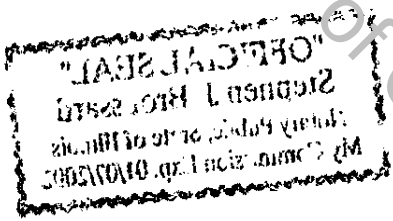 "OFFICIAL SEAL"
Stephen J. Broussard
Notary Public, State of Illinois
My Commission Exp. 01/07/2002
Of